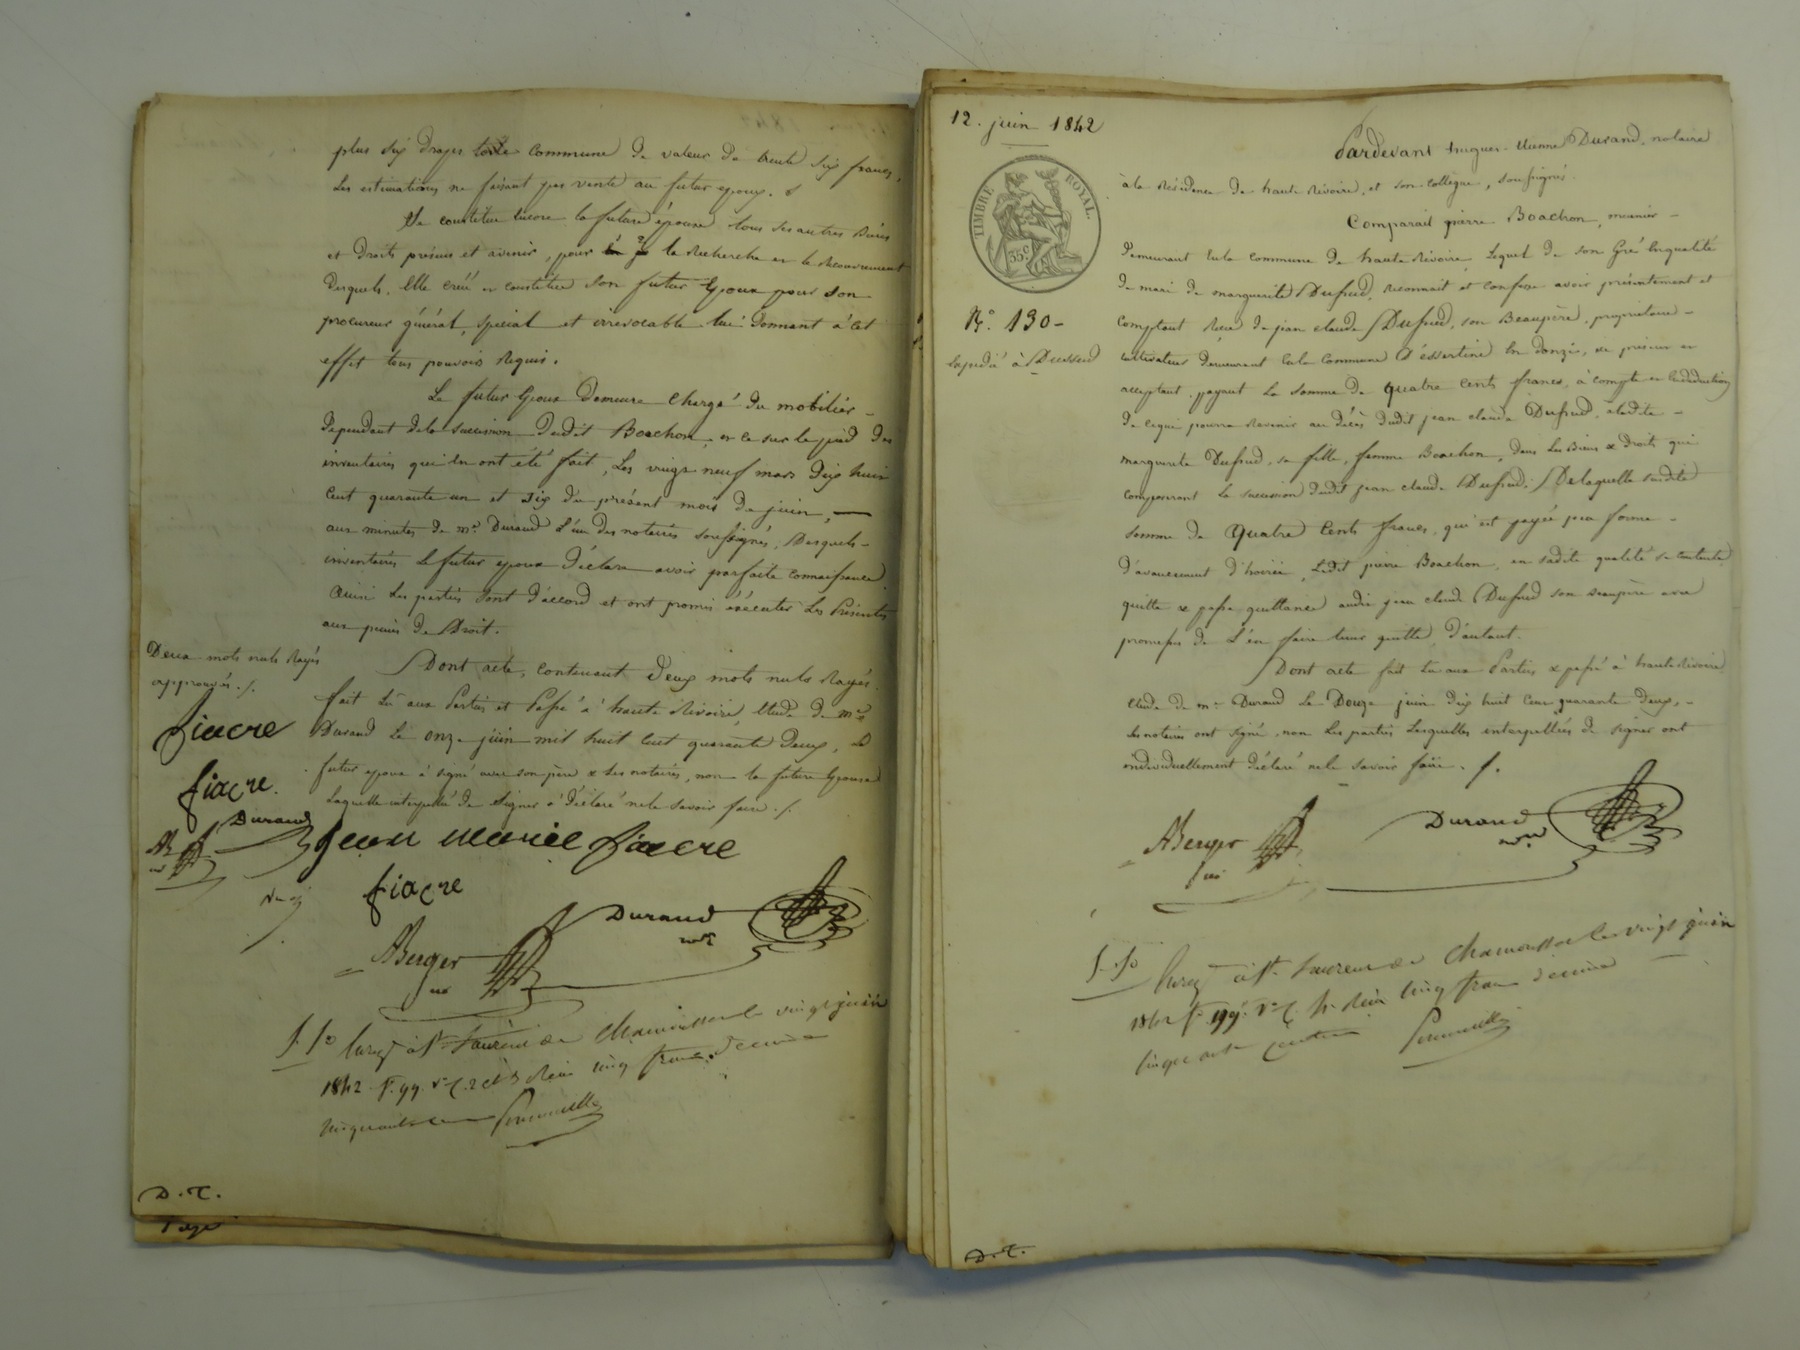 plus six draps toile commune de valeur de trente six francs,
Les estimations ne faisant pas vente au futur epoux.
Se constitue encore la future épouse tous ses autres Biens
et Droits présens et avenir, pour la Recherche et le Recouvrement
Desquels, Elle créé et constitue son futur Epoux pour son
procureur général, spécial et irrevocable lui Donnant à cet
effet tous pouvoirs Requis.
Le futur Epoux Demeure Chargé du mobilier
Dependant dela succession Dudit Boachon, et ce sur le pied des
inventaires qui en ont été fait, Les vingt neuf mars Dix huit
Cent quarante un et six du présent mois de juin,
aux minutes de me. Durand L'un des notaires soussignés, Desquels
inventaires Le futur epoux Déclare avoir parfaite connaissance
Ainsi Les parties sont d'accord et ont promis éxécuter Les Présentes
aux peines de Droit.
Dont acte, contenant Deux mots nuls Rayés.
fait Lû aux Parties et Passé à haute Rivoire, Etude de me.
Durand Le onze juin mil huit Cent quarante Deux, Le
futur epoux à signé avec son père & Les notaires, non la future Epouse
Laquelle interpellé de signer à Déclaré nele savoir faire ./.
Deux mots nuls Rayés
approuvés ./.
fiacre
fiacre.
Durand
jean marie fiacre
fiacre
Durand
not
ABerger
St. Laurent de Chamousset le vingt juin
1842 f°. 99. v° C. 2 et 3 Reçu cinq francs décime
D. T.
12. juin 1842
TIMBRE ROYAL.
35 c
N°. 130-
Expedié à Dussend
Pardevant hugues-Etienne Durand, notaire
à la Résidence de haute Rivoire, et son collègue, soussignés.
Comparait pierre Boachon, meunier
Demeurant En la commune de haute Rivoire, Lequel de son Gré En qualité
de mari de marguerite Dufud, reconnait et confesse avoir présentement et
comptant Reçu de jean claude Dufud, son Beaupère, propriétaire
cultivateur Demeurant En la Commune d'éssertine En donzis, ici présent et
acceptant, payant La somme de quatre Cents francs, à compte et En déduction
De ce qui pourra Revenir au décès dudit jean claude Dufud, à ladite
marguerite Dufud, sa fille, femme Boachon, Dans Les Biens & Droits qui
composeront La succession Dudit jean claude Dufud. De laquelle susdite
somme de Quatre Cents francs, qui est payée par forme
d'avancement d'hoirie, Ledit pierre Boachon, en sadite qualité se contente,
quitte & passe quittance audit jean claude Dufud son Beaupère avec
promesses de L'en faire tenir quitte D'autant.
Dont acte fait Lu aux Parties & passé à haute Rivoire
Etude de me. Durand Le Douze juin dix huit Cent quarante deux,
Les notaires ont signé, non Les parties Lesquelles interpellées de signer ont
individuellement déclaré nele savoir faire. ./.
ABerger
Durand
not
St. Laurent de Chamousset le vingt juin
1842 f° 99. v° C. 4 Reçu cinq francs décime
cinquante centimes
D. T.